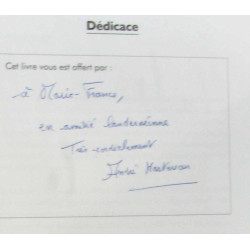 Dédicace
Cet livre vous est offert par :
à Marie-France,
en amitié landernéenne
Très cordialement
André